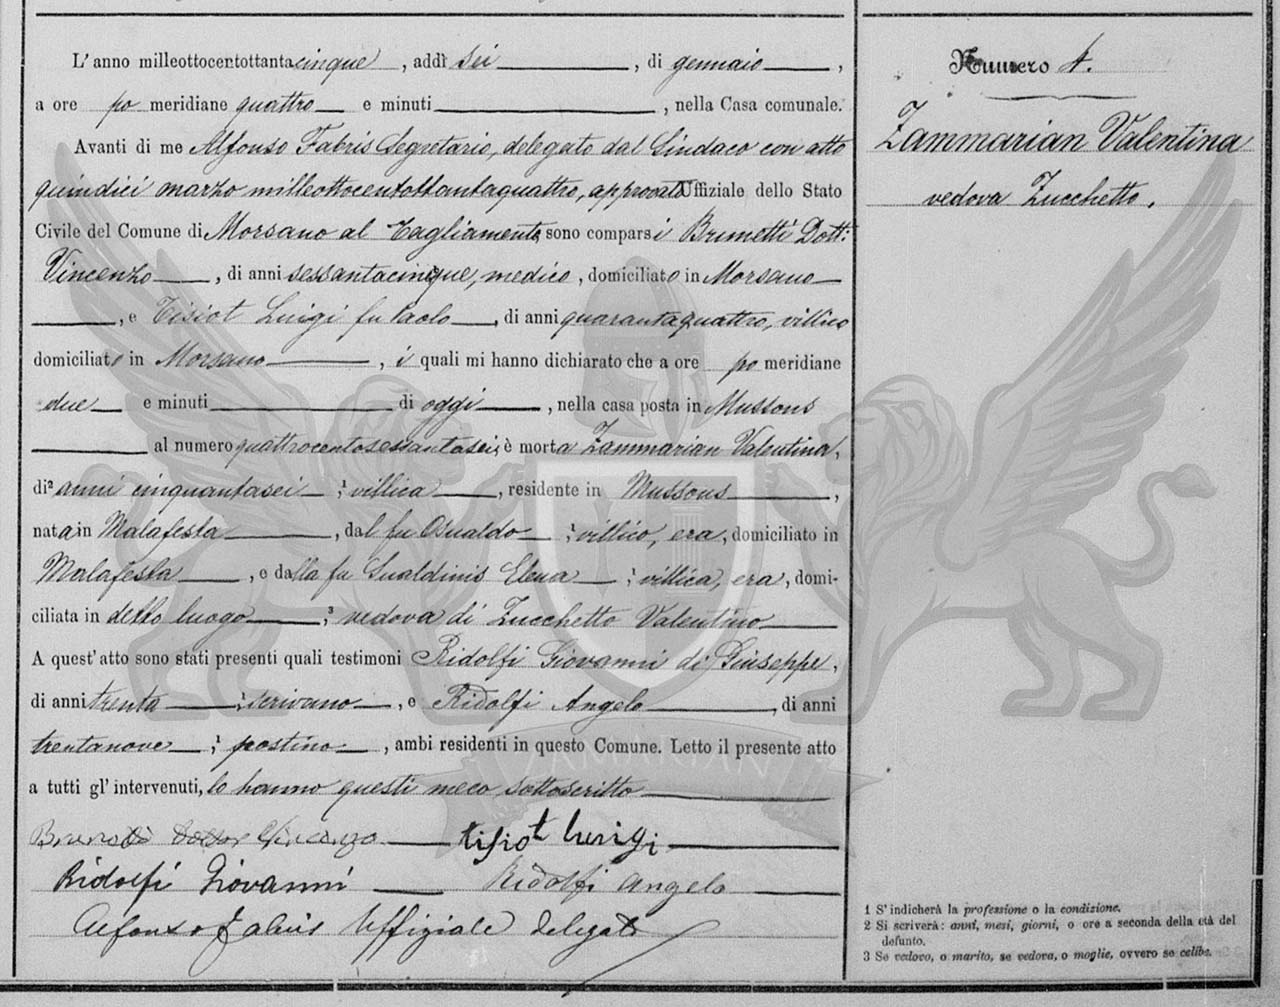 L' anno milleottocentottantacinque, addì sei, di gennaio,
a ore po meridiane quattro e minuti, nella Casa comunale.
Avanti di me Alfonso Fabris Segretario, delegato dal Sindaco con atto
quindici marzo milleottocentottantaquattro, approvato Uffiziale dello Stato
Civile del Comune di Morsano al Tagliamento, sono comparsi Brunetti Dott:
Vincenzo, di anni sessantacinque, medico, domiciliato in Morsano
, e Tisiot Luigi fu Paolo, di anni quarantaquattro, villico
domiciliato in Morsano, i quali mi hanno dichiarato che a ore po meridiane
due e minuti di oggi, nella casa posta in Mussons
al numero quattrocentosessantasei, è morta Zammarian Valentina,
di² anni cinquantasei, ¹ villica, residente in Mussons,
nata in Malafesta, dal fu Osualdo, ¹ villico, era, domiciliato in
Malafesta, e dalla fu Gualdinis Elena, ¹ villica, era, domi-
ciliata in detto luogo, ³ vedova di Zucchetto Valentino
A quest' atto sono stati presenti quali testimoni Ridolfi Giovanni di Giuseppe,
di anni trenta, ¹ scrivano, e Ridolfi Angelo, di anni
trentanove, ¹ postino, ambi residenti in questo Comune. Letto il presente atto
a tutti gl' intervenuti, lo hanno questi meco sottoscritto
Brunetti Dottor Vincenzo tisiot luigi
Ridolfi Giovanni Ridolfi Angelo
Alfonso Fabris Uffiziale delegato
Numero 4.
Zammarian Valentina
vedova Zucchetto.
1 S' indicherà la professione o la condizione.
2 Si scriverà: anni, mesi, giorni, o ore a seconda della età del
defunto.
3 Se vedovo, o marito, se vedova, o moglie, ovvero se celibe.
ZAMARIAN